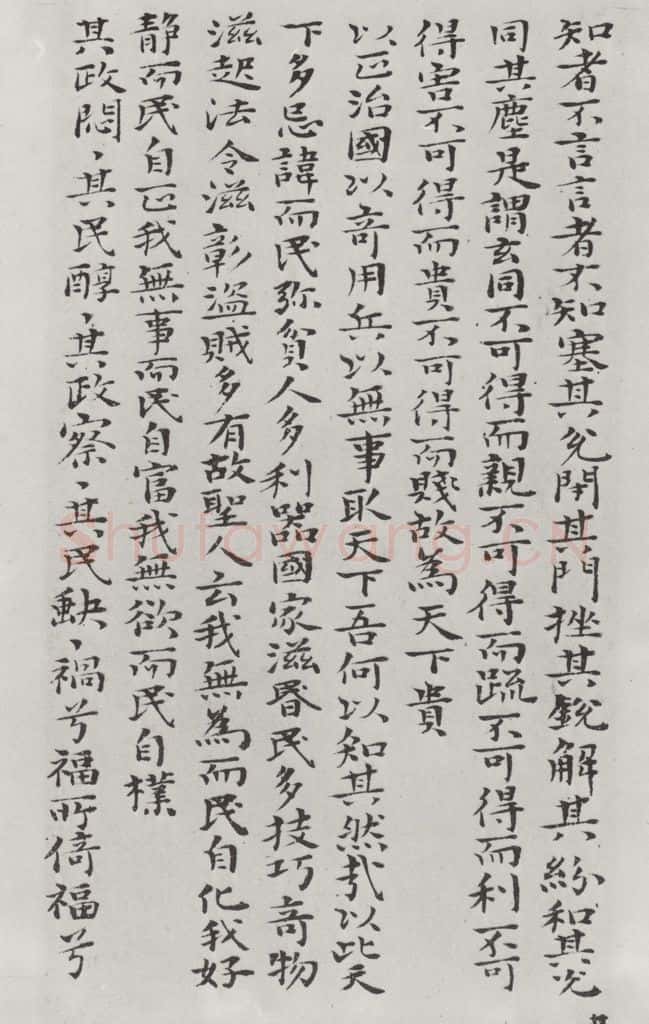 知者不言言者不知塞其兌閉其門挫其銳解其紛和其光
同其塵是謂玄同不可得而親不可得而疏不可得而利不可
得害不可得而貴不可得而賤故為天下貴
以正治國以奇用兵以無事取天下吾何以知其然哉以此天
下多忌諱而民弥貧人多利器國家滋昬民多技巧奇物
滋起法令滋彰盜賊多有故聖人云我無為而民自化我好
靜而民自正我無事而民自富我無欲而民自樸
其政悶、其民醇、其政察、其民缺、禍兮福所倚福兮
Shufawang.CN